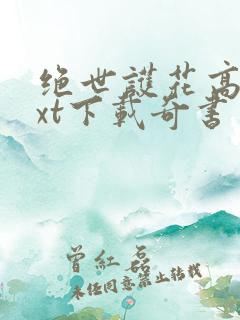 绝世護花高
xt下載奇書
曾紅磊
未经同意禁止转载